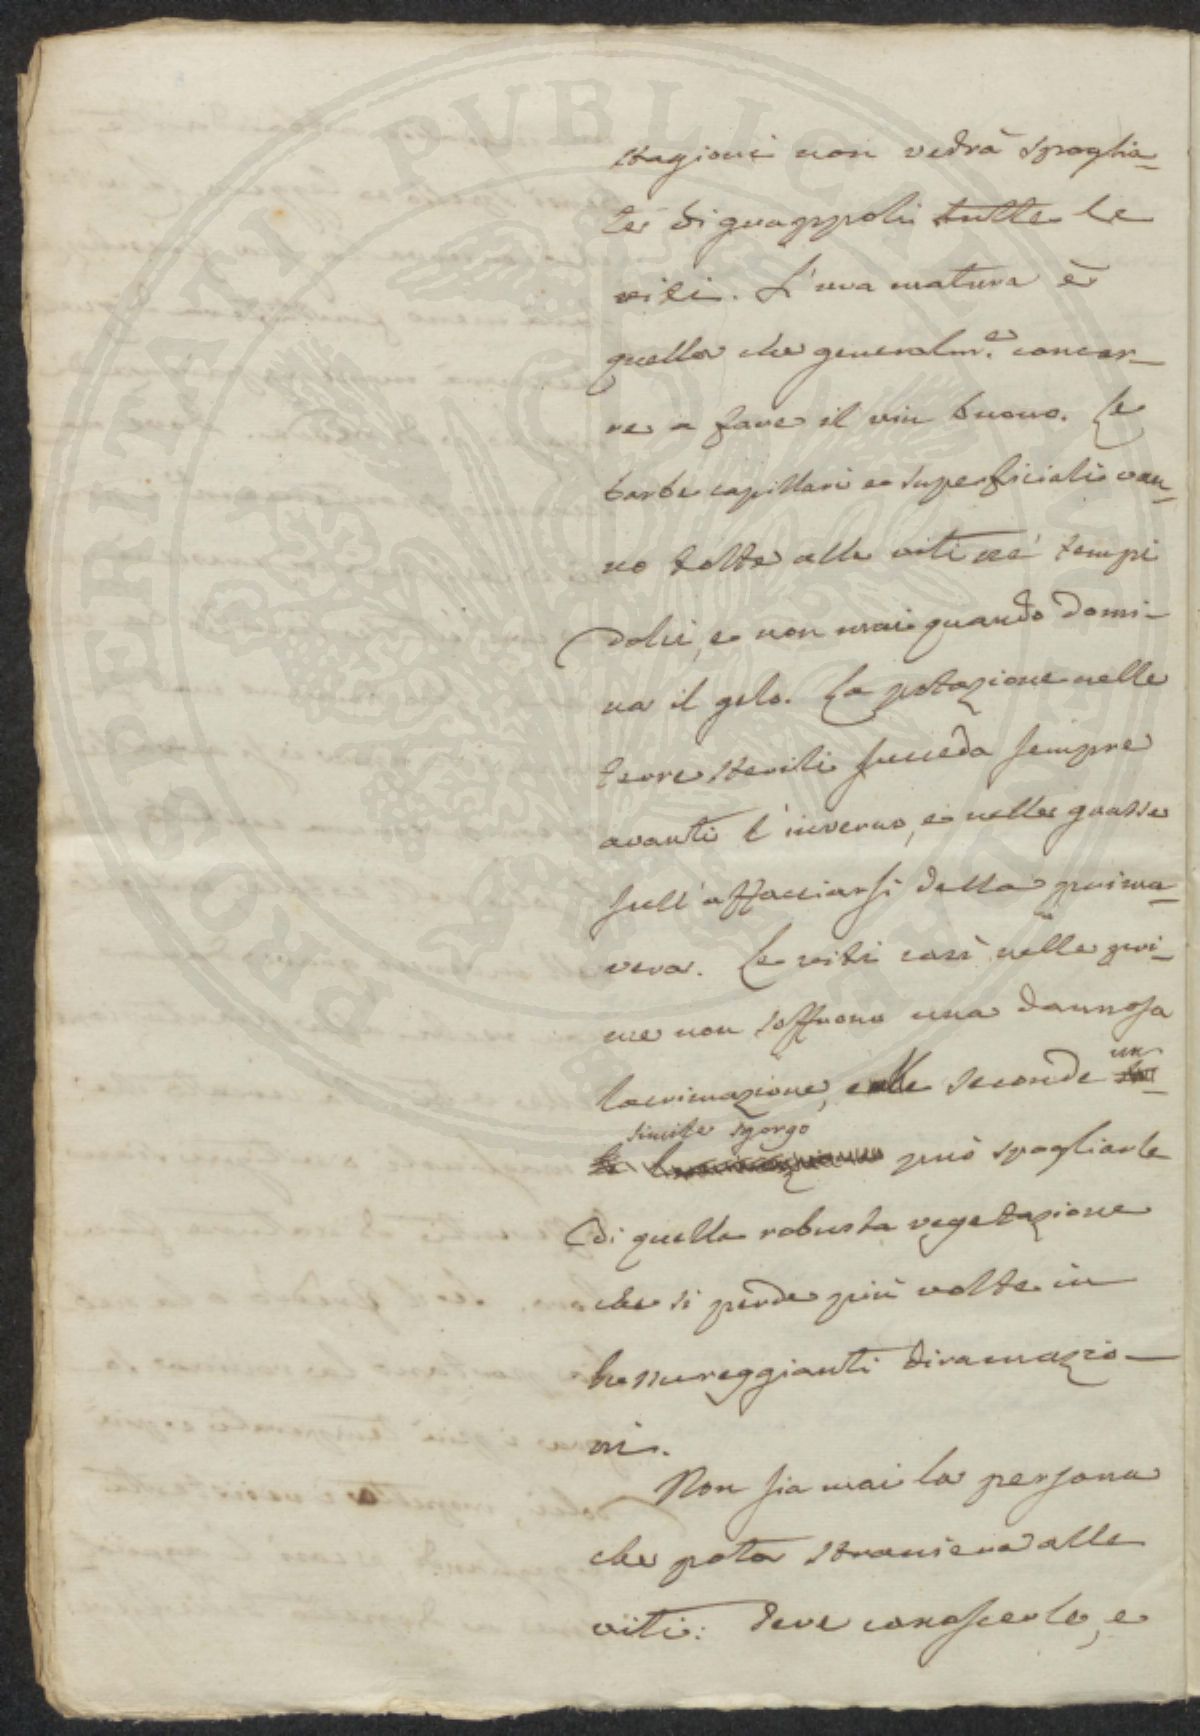 stagioni non vedrà spoglia-
te di grappoli tutte le
viti. L'uva matura è
quella che generalm.e concor-
re a fare il vin buono. Le
barbe capillari e superficiali van-
no tolte alle viti ne' tempi
dolci, e non mai quando domi-
na il gelo. La potazione nelle
terre sterili succeda sempre
avanti l'inverno, e nelle grasse
sull'affacciarsi della prima-
vera. Le viti così nelle pri-
me non soffrono una dannosa
lacrimazione, e alle seconde un
simile sgorgo può spogliarle
di quella robusta vegetazione
che si perde più volte in
lussureggianti diramazio-
ni.
Non sia mai la persona
che pota straniera alle
viti: deve conoscerle, e
PROSPERITATI PUBLICAE